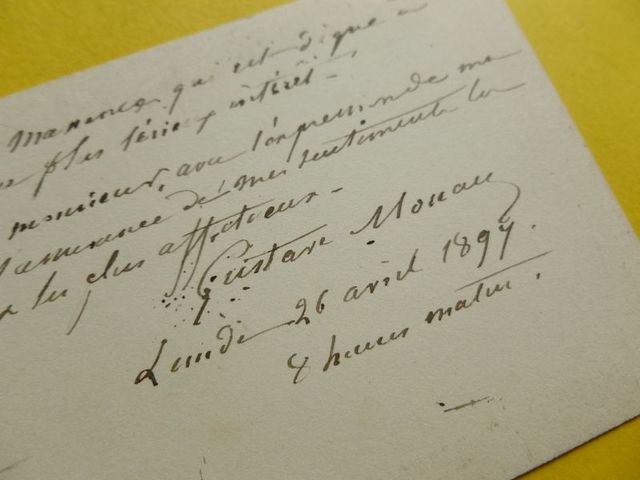 qui est digne
plus sérieux intérêt -
monsieur, avec l'expression de ma
l'assurance de mes sentiments les
les plus affectueux -
Gustave Monau
Lundi 26 avril 1897.
8 heures matin.